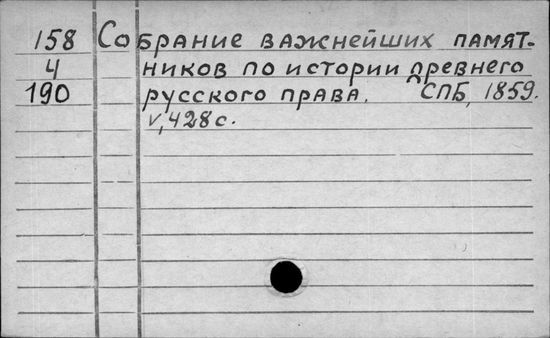 158 Собрание важнейших памят-
4 ников по истории древнего
190 русского права. СПБ, 1859.
V, 428 с.